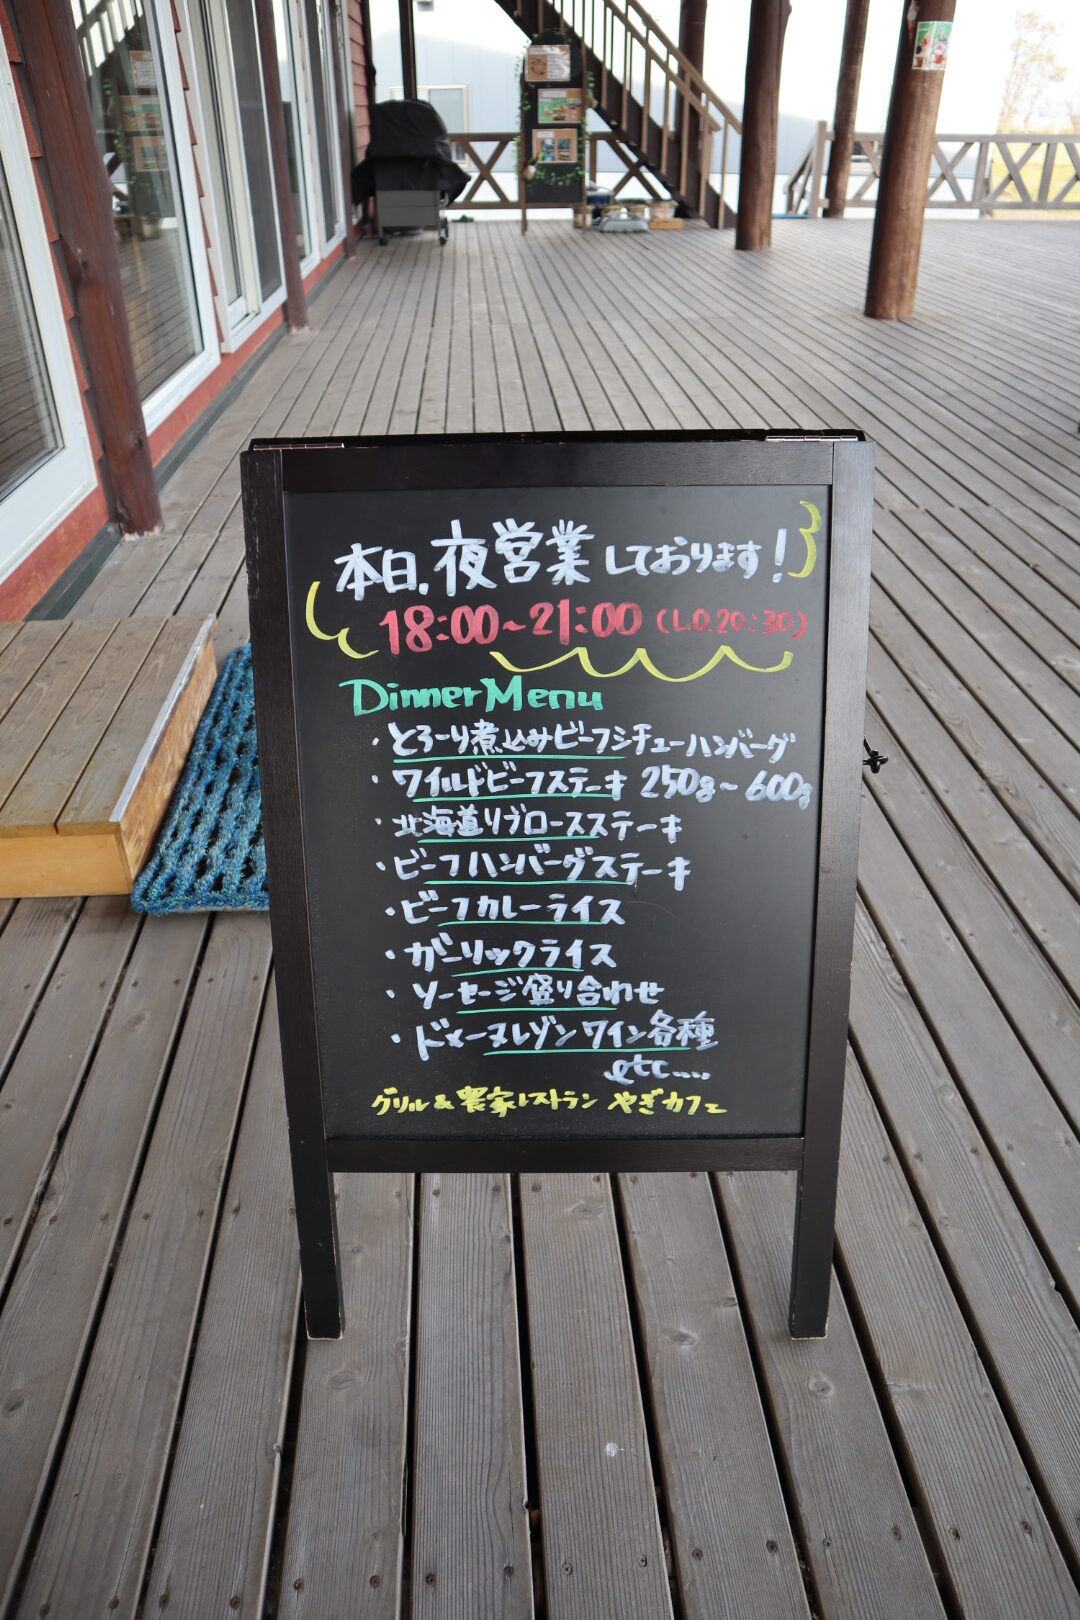 本日、夜営業しております!
18:00~21:00 (L.O.20:30)
Dinner Menu
・とろーり煮込みビーフシチューハンバーグ
・ワイルドビーフステーキ 250g~600g
・北海道リブロースステーキ
・ビーフハンバーグステーキ
・ビーフカレーライス
・ガーリックライス
・ソーセージ盛り合わせ
・ドメーヌレゾンワイン各種
etc....
グリル&農家レストラン やぎカフェ